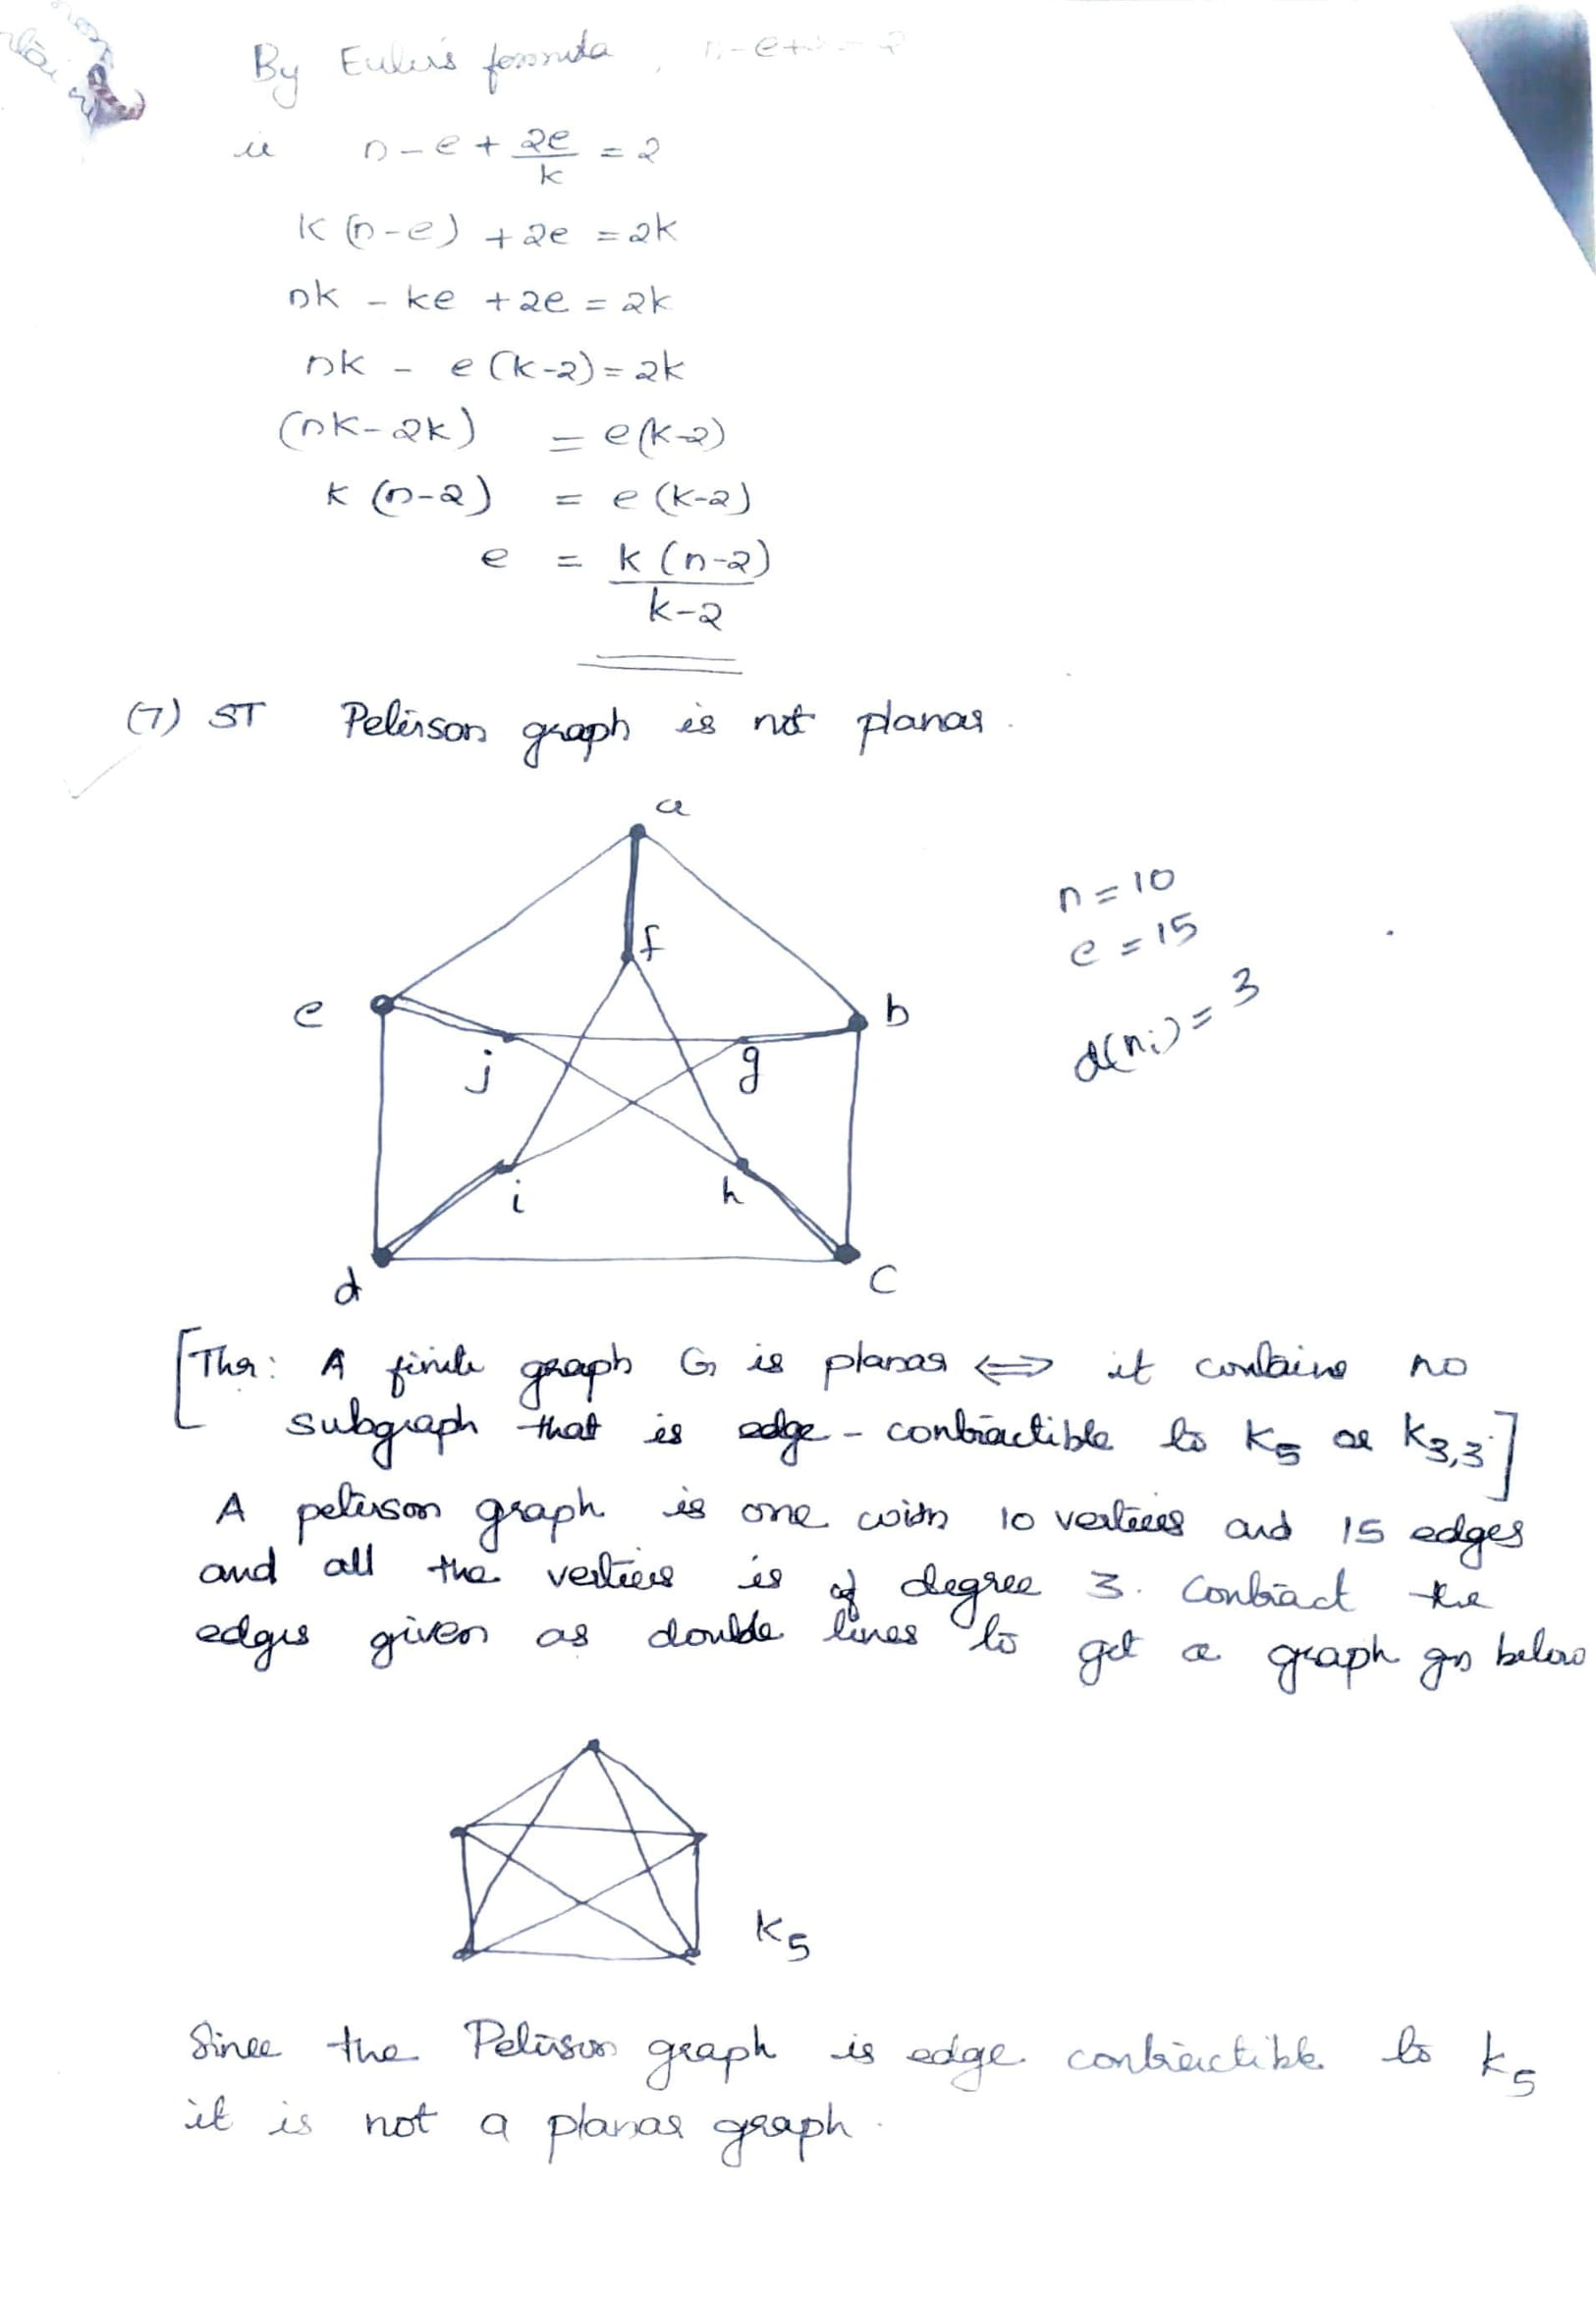 By Euler's formula, n-e+r=2
ie n - e + 2e/k = 2
k(n-e) + 2e = 2k
nk - ke + 2e = 2k
nk - e(k-2) = 2k
(nk-2k) = e(k-2)
k(n-2) = e(k-2)
e = k(n-2)/k-2
(7) ST Peterson graph is not planar.
a
f
e
b
j
g
i
h
d
c
n=10
e=15
d(ni)=3
[Thr: A finite graph G is planar ⟺ it contains no
subgraph that is edge-contractible to K5 or K3,3]
A peterson graph is one with 10 vertices and 15 edges
and all the vertices is of degree 3. Contract the
edges given as double lines to get a graph gn below
K5
Since the Peterson graph is edge contractible to K5
it is not a planar graph.